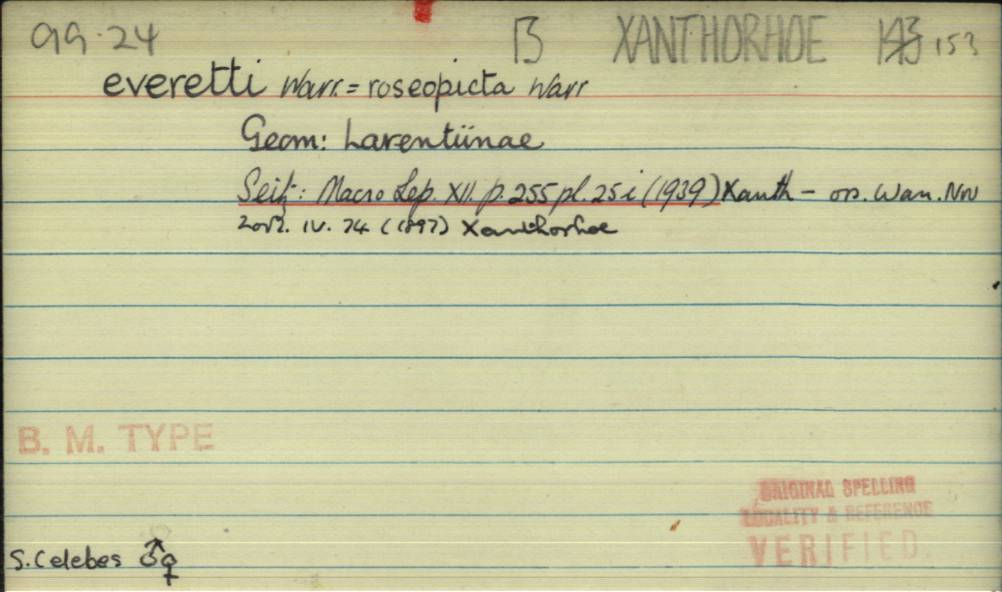 99.24 B XANTHORHOE 143 153
everetti Warr. = roseopicta Warr
Geom: Larentiinae
Seitz: Macro Lep. XII. p. 255 pl. 25 i (1939) Xanth - op. Warr. Nov
Zool. IV. 74 (1897) Xanthorhoe
B. M. TYPE
ORIGINAL SPELLING
LOCALITY & REFERENCE
VERIFIED.
S. Celebes ♂♀